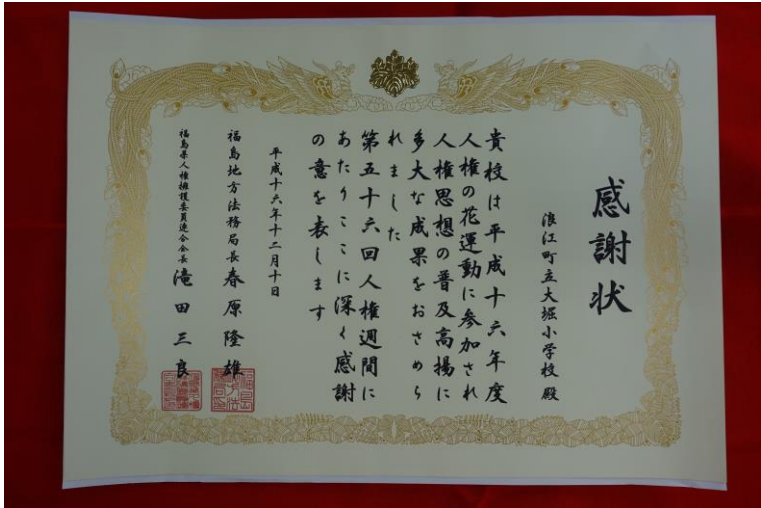 感謝状
浪江町立大堀小学校殿
貴校は平成十六年度
人権の花運動に参加され
人権思想の普及高揚に
多大な成果をおさめら
れました
第五十六回人権週間に
あたりここに深く感謝
の意を表します
平成十六年十二月十日
福島地方法務局長 春原隆雄
福島県人権擁護委員連合会会長 滝田三良